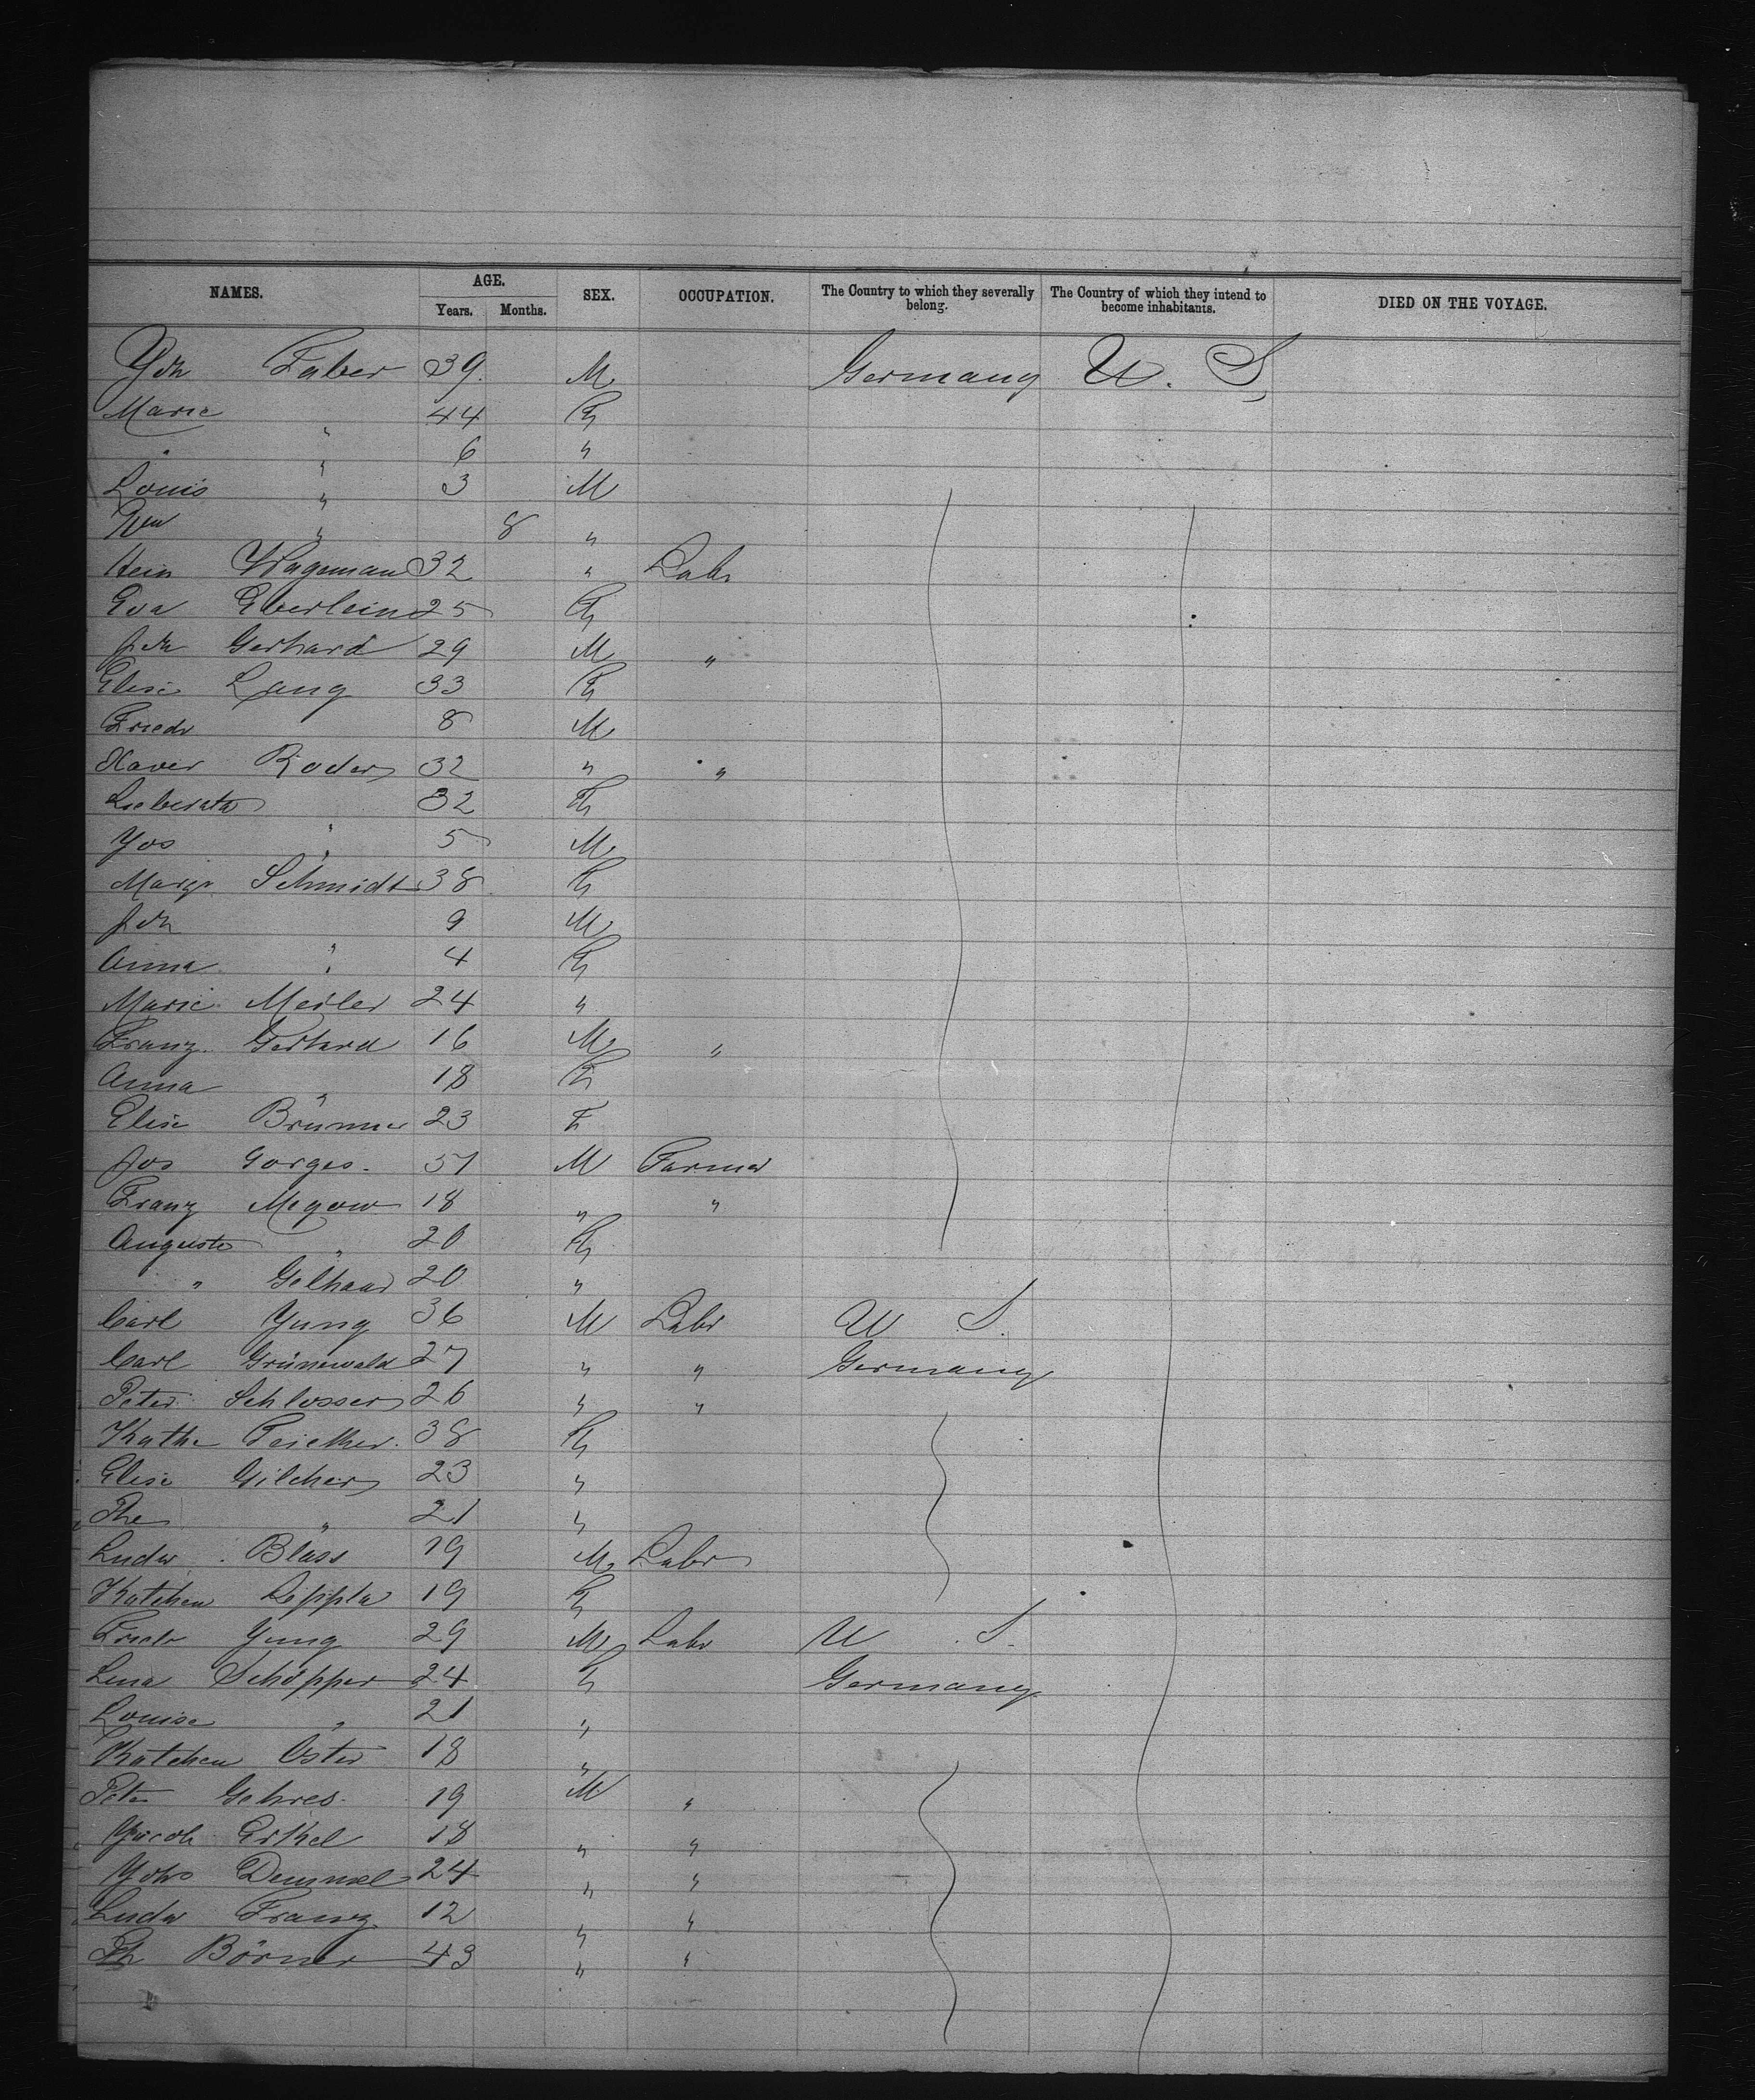 NAMES. AGE. SEX. OCCUPATION. The Country to which they severally belong. The Country of which they intend to become inhabitants. DIED ON THE VOYAGE.
Years. Months.
Joh Faber 39. M Germany U. S
Marie " 44 F
" " 6 "
Louis " 3 M
" 8 "
Hein Wageman 32 " Labr
Eva Eberlein 25 F
Joh Gerhard 29 M "
Elise Lang 33 F
Friedr 8 M
Xaver Roder 32 " "
Lieberata 32 F
Jos " 5 M
Margr Schmidt 38 F
Joh 9 M
Anna " 4 F
Marie Meiler 24 "
Franz Gerhard 16 M "
Anna " 18 F
Elise Brunner 23 F
Jos Gorges. 51 M Farmer
Franz Megow 18 " "
Auguste " 20 F
" Gelhaar 20 "
Carl Jung 36 M Labr U S.
Carl Grünewald 27 " " Germany
Peter Schlosser 26 " "
Kathe 38 F
Elise Gilcher 23 "
" 21 "
Ludw Bläss 19 M Labr
Katchen Leppla 19 F
Friedr Jung 29 M Labr U S.
Lena Schöpper 24 F Germany
Louise " 21 "
Katchen Oster 18 "
Peter Gehres. 19 M "
Jacob Erkel 18 " "
24 " "
Ludw Franz 12 " "
Ph Börner 43 " "